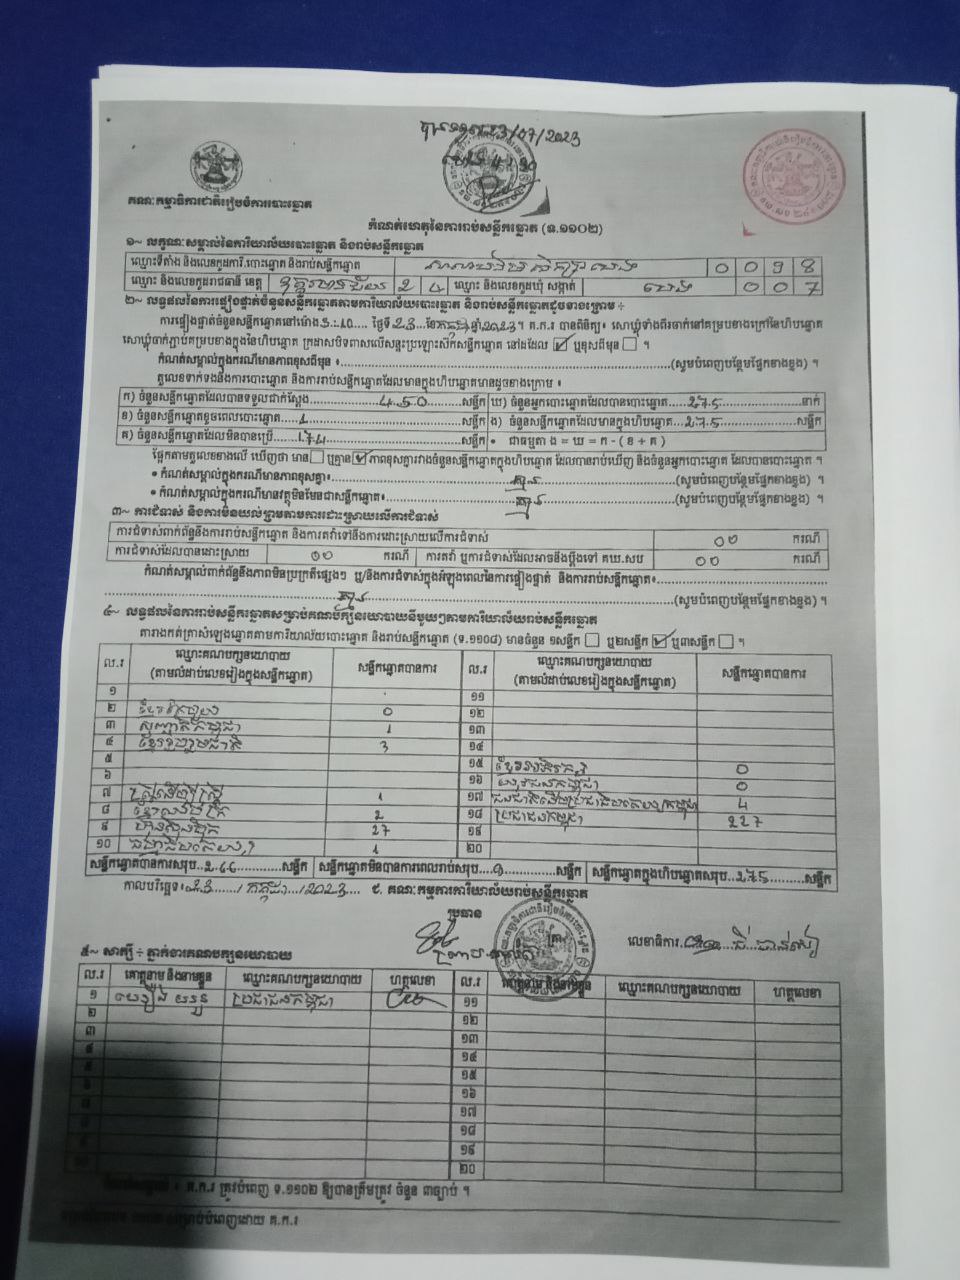 23/07/2023
គណៈកម្មាធិការជាតិរៀបចំការបោះឆ្នោត
កំណត់ហេតុនៃការរាប់សន្លឹកឆ្នោត (ទ.១១០២)
១~ លក្ខណៈសម្គាល់នៃការិយាល័យបោះឆ្នោត និងរាប់សន្លឹកឆ្នោត
ឈ្មោះទីតាំង និងលេខកូដការិ.បោះឆ្នោត និងរាប់សន្លឹកឆ្នោត
ឈ្មោះ និងលេខកូដរាជធានី ខេត្ត 2 4 ឈ្មោះ និងលេខកូដឃុំ សង្កាត់ 0 0 7
២~ លទ្ធផលនៃការផ្ទៀងផ្ទាត់ចំនួនសន្លឹកឆ្នោតតាមការិយាល័យបោះឆ្នោត និងរាប់សន្លឹកឆ្នោតដូចខាងក្រោម ÷
ការផ្ទៀងផ្ទាត់ចំនួនសន្លឹកឆ្នោតនៅម៉ោង ថ្ងៃទី 23 ខែកក្កដា ឆ្នាំ 2023។ គ.ក.រ បានពិនិត្យ
នៅដដែល ឬខុសពីមុន ។
កំណត់សម្គាល់ក្នុងករណីមានភាពខុសពីមុន ៖ (សូមបំពេញបន្ថែមផ្នែកខាងខ្នង) ។
តួលេខទាក់ទងនឹងការបោះឆ្នោត និងការរាប់សន្លឹកឆ្នោតដែលមានក្នុងហិបឆ្នោតមានដូចខាងក្រោម ៖
ក) ចំនួនសន្លឹកឆ្នោតដែលបានទទួលជាក់ស្តែង 450 សន្លឹក ឃ) ចំនួនអ្នកបោះឆ្នោតដែលបានបោះឆ្នោត 275 នាក់
ខ) ចំនួនសន្លឹកឆ្នោតខូចពេលបោះឆ្នោត 1 សន្លឹក ង) ចំនួនសន្លឹកឆ្នោតដែលមានក្នុងហិបឆ្នោត 275 សន្លឹក
គ) ចំនួនសន្លឹកឆ្នោតដែលមិនបានប្រើ 174 សន្លឹក • ជាធម្មតា ង = ឃ = ក - ( ខ + គ )
ផ្អែកតាមតួលេខខាងលើ ឃើញថា មាន ឬគ្មាន ភាពខុសគ្នារវាងចំនួនសន្លឹកឆ្នោតក្នុងហិបឆ្នោត ដែលបានរាប់ឃើញ និងចំនួនអ្នកបោះឆ្នោត ដែលបានបោះឆ្នោត ។
• កំណត់សម្គាល់ក្នុងករណីមានភាពខុសគ្នា៖ គ្មាន (សូមបំពេញបន្ថែមផ្នែកខាងខ្នង) ។
• កំណត់សម្គាល់ក្នុងករណីមានវត្ថុមិនមែនជាសន្លឹកឆ្នោត៖ គ្មាន (សូមបំពេញបន្ថែមផ្នែកខាងខ្នង) ។
៣~ ការជំទាស់ និងការមិនយល់ព្រមតាមការដោះស្រាយលើការជំទាស់
ការជំទាស់ពាក់ព័ន្ធនឹងការរាប់សន្លឹកឆ្នោត និងការតវ៉ាទៅនឹងការដោះស្រាយលើការជំទាស់ 00 ករណី
ការជំទាស់ដែលបានដោះស្រាយ 00 ករណី ការតវ៉ា ឬការជំទាស់ដែលអាចនឹងប្តឹងទៅ គឃ.សប 00 ករណី
កំណត់សម្គាល់ពាក់ព័ន្ធនឹងភាពមិនប្រក្រតីផ្សេងៗ ឬ/និងការជំទាស់ក្នុងអំឡុងពេលនៃការផ្ទៀងផ្ទាត់ និងការរាប់សន្លឹកឆ្នោត៖
គ្មាន (សូមបំពេញបន្ថែមផ្នែកខាងខ្នង) ។
៤~ លទ្ធផលនៃការរាប់សន្លឹកឆ្នោតសម្រាប់គណបក្សនយោបាយនីមួយៗតាមការិយាល័យរាប់សន្លឹកឆ្នោត
តារាងកត់ត្រាសំឡេងឆ្នោតតាមការិយាល័យបោះឆ្នោត និងរាប់សន្លឹកឆ្នោត (ទ.១១០៨) មានចំនួន ១សន្លឹក ឬ២សន្លឹក ឬ៣សន្លឹក ។
ល.រ ឈ្មោះគណបក្សនយោបាយ សន្លឹកឆ្នោតបានការ ល.រ ឈ្មោះគណបក្សនយោបាយ សន្លឹកឆ្នោតបានការ
(តាមលំដាប់លេខរៀងក្នុងសន្លឹកឆ្នោត) (តាមលំដាប់លេខរៀងក្នុងសន្លឹកឆ្នោត)
១ ១១
២ 0 ១២
៣ 1 ១៣
៤ ខ្មែររួបរួមជាតិ 3 ១៤
៥ ១៥ 0
៦ ១៦ 0
៧ 1 ១៧ 4
៨ 2 ១៨ ប្រជាជនកម្ពុជា 227
៩ ហ៊្វុនស៊ិនប៉ិច 27 ១៩
១០ 1 ២០
សន្លឹកឆ្នោតបានការសរុប 266 សន្លឹក សន្លឹកឆ្នោតមិនបានការពេលរាប់សរុប 9 សន្លឹក សន្លឹកឆ្នោតក្នុងហិបឆ្នោតសរុប 275 សន្លឹក
កាលបរិច្ឆេទ៖ 23 / កក្កដា / 2023 ជ. គណៈកម្មការការិយាល័យរាប់សន្លឹកឆ្នោត
ប្រធាន
លេខាធិការ
៥~ សាក្សី ÷ ភ្នាក់ងារគណបក្សនយោបាយ
ល.រ គោត្តនាម និងនាមខ្លួន ឈ្មោះគណបក្សនយោបាយ ហត្ថលេខា ល.រ គោត្តនាម និងនាមខ្លួន ឈ្មោះគណបក្សនយោបាយ ហត្ថលេខា
១ ប្រជាជនកម្ពុជា ១១
២ ១២
៣ ១៣
៤ ១៤
៥ ១៥
៦ ១៦
៧ ១៧
៨ ១៨
៩ ១៩
២០
គ.ក.រ ត្រូវបំពេញ ទ.១១០២ ឱ្យបានត្រឹមត្រូវ ចំនួន ៣ច្បាប់ ។